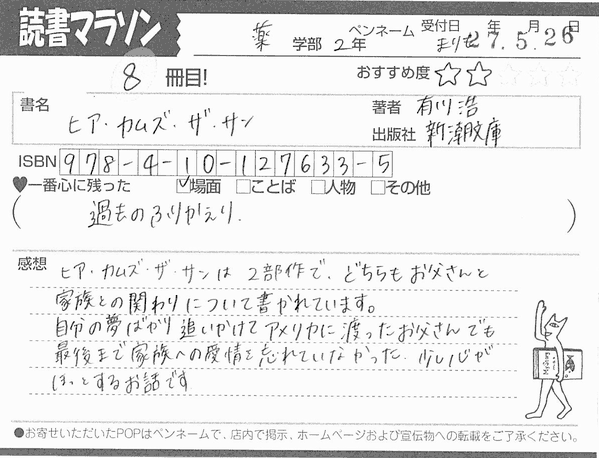 読書マラソン
薬 学部 2年 ペンネーム まりも 受付日 27.5.26 年 月 日
8 冊目! おすすめ度 ☆☆
書名 著者 有川浩
ヒア・カムズ・ザ・サン 出版社 新潮文庫
ISBN 978-4-10-127633-5
♥一番心に残った ☑場面 □ことば □人物 □その他
( 過去のふりかえり. )
感想 ヒア・カムズ・ザ・サンは2部作で、どちらもお父さんと
家族との関わりについて書かれています。
自分の夢ばかり追いかけてアメリカに渡ったお父さんでも
最後まで家族への愛情を忘れていなかった、少し心が
ほっとするお話です
●お寄せいただいたPOPはペンネームで、店内で掲示、ホームページおよび宣伝物への転載をご了承ください。